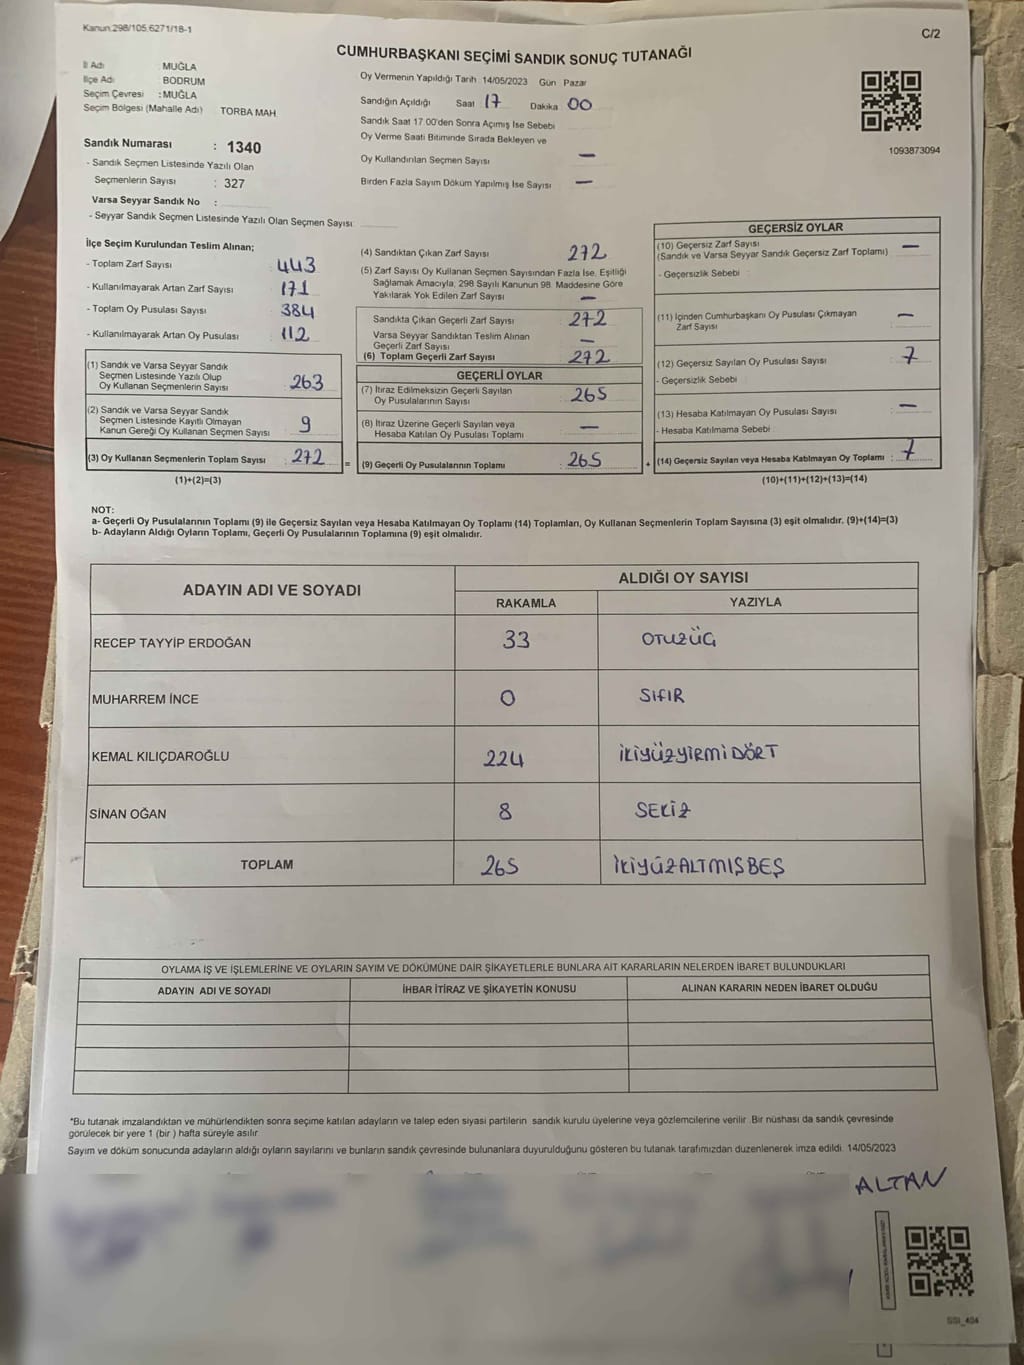 Kanun.298/105,6271/18-1
C/2
CUMHURBAŞKANI SEÇİMİ SANDIK SONUÇ TUTANAĞI
İl Adı : MUĞLA
İlçe Adı : BODRUM
Seçim Çevresi : MUĞLA
Seçim Bölgesi (Mahalle Adı) TORBA MAH.
Oy Vermenin Yapıldığı Tarih 14/05/2023 Gün Pazar
Sandığın Açıldığı Saat 17 Dakika 00
Sandık Saat 17.00'den Sonra Açımış İse Sebebi
Oy Verme Saati Bitiminde Sırada Bekleyen ve
Oy Kullandırılan Seçmen Sayısı —
Birden Fazla Sayım Döküm Yapılmış İse Sayısı —
1093873094
Sandık Numarası : 1340
- Sandık Seçmen Listesinde Yazılı Olan
Seçmenlerin Sayısı : 327
Varsa Seyyar Sandık No :
- Seyyar Sandık Seçmen Listesinde Yazılı Olan Seçmen Sayısı
İlçe Seçim Kurulundan Teslim Alınan;
- Toplam Zarf Sayısı : 443
- Kullanılmayarak Artan Zarf Sayısı : 171
- Toplam Oy Pusulası Sayısı : 384
- Kullanılmayarak Artan Oy Pusulası : 112
(1) Sandık ve Varsa Seyyar Sandık
Seçmen Listesinde Yazılı Olup
Oy Kullanan Seçmenlerin Sayısı 263
(2) Sandık ve Varsa Seyyar Sandık
Seçmen Listesinde Kayıtlı Olmayan
Kanun Gereği Oy Kullanan Seçmen Sayısı 9
(3) Oy Kullanan Seçmenlerin Toplam Sayısı : 272 =
(1)+(2)=(3)
(4) Sandıktan Çıkan Zarf Sayısı 272
(5) Zarf Sayısı Oy Kullanan Seçmen Sayısından Fazla İse, Eşitliği
Sağlamak Amacıyla, 298 Sayılı Kanunun 98. Maddesine Göre
Yakılarak Yok Edilen Zarf Sayısı —
Sandıkta Çıkan Geçerli Zarf Sayısı 272
Varsa Seyyar Sandıktan Teslim Alınan
Geçerli Zarf Sayısı —
(6) Toplam Geçerli Zarf Sayısı 272
GEÇERLİ OYLAR
(7) İtiraz Edilmeksizin Geçerli Sayılan
Oy Pusulalarının Sayısı 265
(8) İtiraz Üzerine Geçerli Sayılan veya
Hesaba Katılan Oy Pusulası Toplamı —
(9) Geçerli Oy Pusulalarının Toplamı : 265 +
GEÇERSİZ OYLAR
(10) Geçersiz Zarf Sayısı —
(Sandık ve Varsa Seyyar Sandık Geçersiz Zarf Toplamı)
- Geçersizlik Sebebi :
(11) İçinden Cumhurbaşkanı Oy Pusulası Çıkmayan
Zarf Sayısı —
(12) Geçersiz Sayılan Oy Pusulası Sayısı 7
- Geçersizlik Sebebi :
(13) Hesaba Katılmayan Oy Pusulası Sayısı —
- Hesaba Katılmama Sebebi :
(14) Geçersiz Sayılan veya Hesaba Katılmayan Oy Toplamı : 7
(10)+(11)+(12)+(13)=(14)
NOT:
a- Geçerli Oy Pusulalarının Toplamı (9) ile Geçersiz Sayılan veya Hesaba Katılmayan Oy Toplamı (14) Toplamları, Oy Kullanan Seçmenlerin Toplam Sayısına (3) eşit olmalıdır. (9)+(14)=(3)
b- Adayların Aldığı Oyların Toplamı, Geçerli Oy Pusulalarının Toplamına (9) eşit olmalıdır.
ADAYIN ADI VE SOYADI ALDIĞI OY SAYISI
RAKAMLA YAZIYLA
RECEP TAYYİP ERDOĞAN 33 OTUZÜÇ
MUHARREM İNCE 0 SIFIR
KEMAL KILIÇDAROĞLU 224 İKİYÜZYİRMİDÖRT
SİNAN OĞAN 8 SEKİZ
TOPLAM 265 İKİYÜZALTMIŞBEŞ
OYLAMA İŞ VE İŞLEMLERİNE VE OYLARIN SAYIM VE DÖKÜMÜNE DAİR ŞİKAYETLERLE BUNLARA AİT KARARLARIN NELERDEN İBARET BULUNDUKLARI
ADAYIN ADI VE SOYADI İHBAR İTİRAZ VE ŞİKAYETİN KONUSU ALINAN KARARIN NEDEN İBARET OLDUĞU
*Bu tutanak imzalandıktan ve mühürlendikten sonra seçime katılan adayların ve talep eden siyasi partilerin sandık kurulu üyelerine veya gözlemcilerine verilir. Bir nüshası da sandık çevresinde
görülecek bir yere 1 (bir ) hafta süreyle asılır
Sayım ve döküm sonucunda adayların aldığı oyların sayılarını ve bunların sandık çevresinde bulunanlara duyurulduğunu gösteren bu tutanak tarafımızdan düzenlenerek imza edildi. 14/05/2023
ALTAN
SSI_404